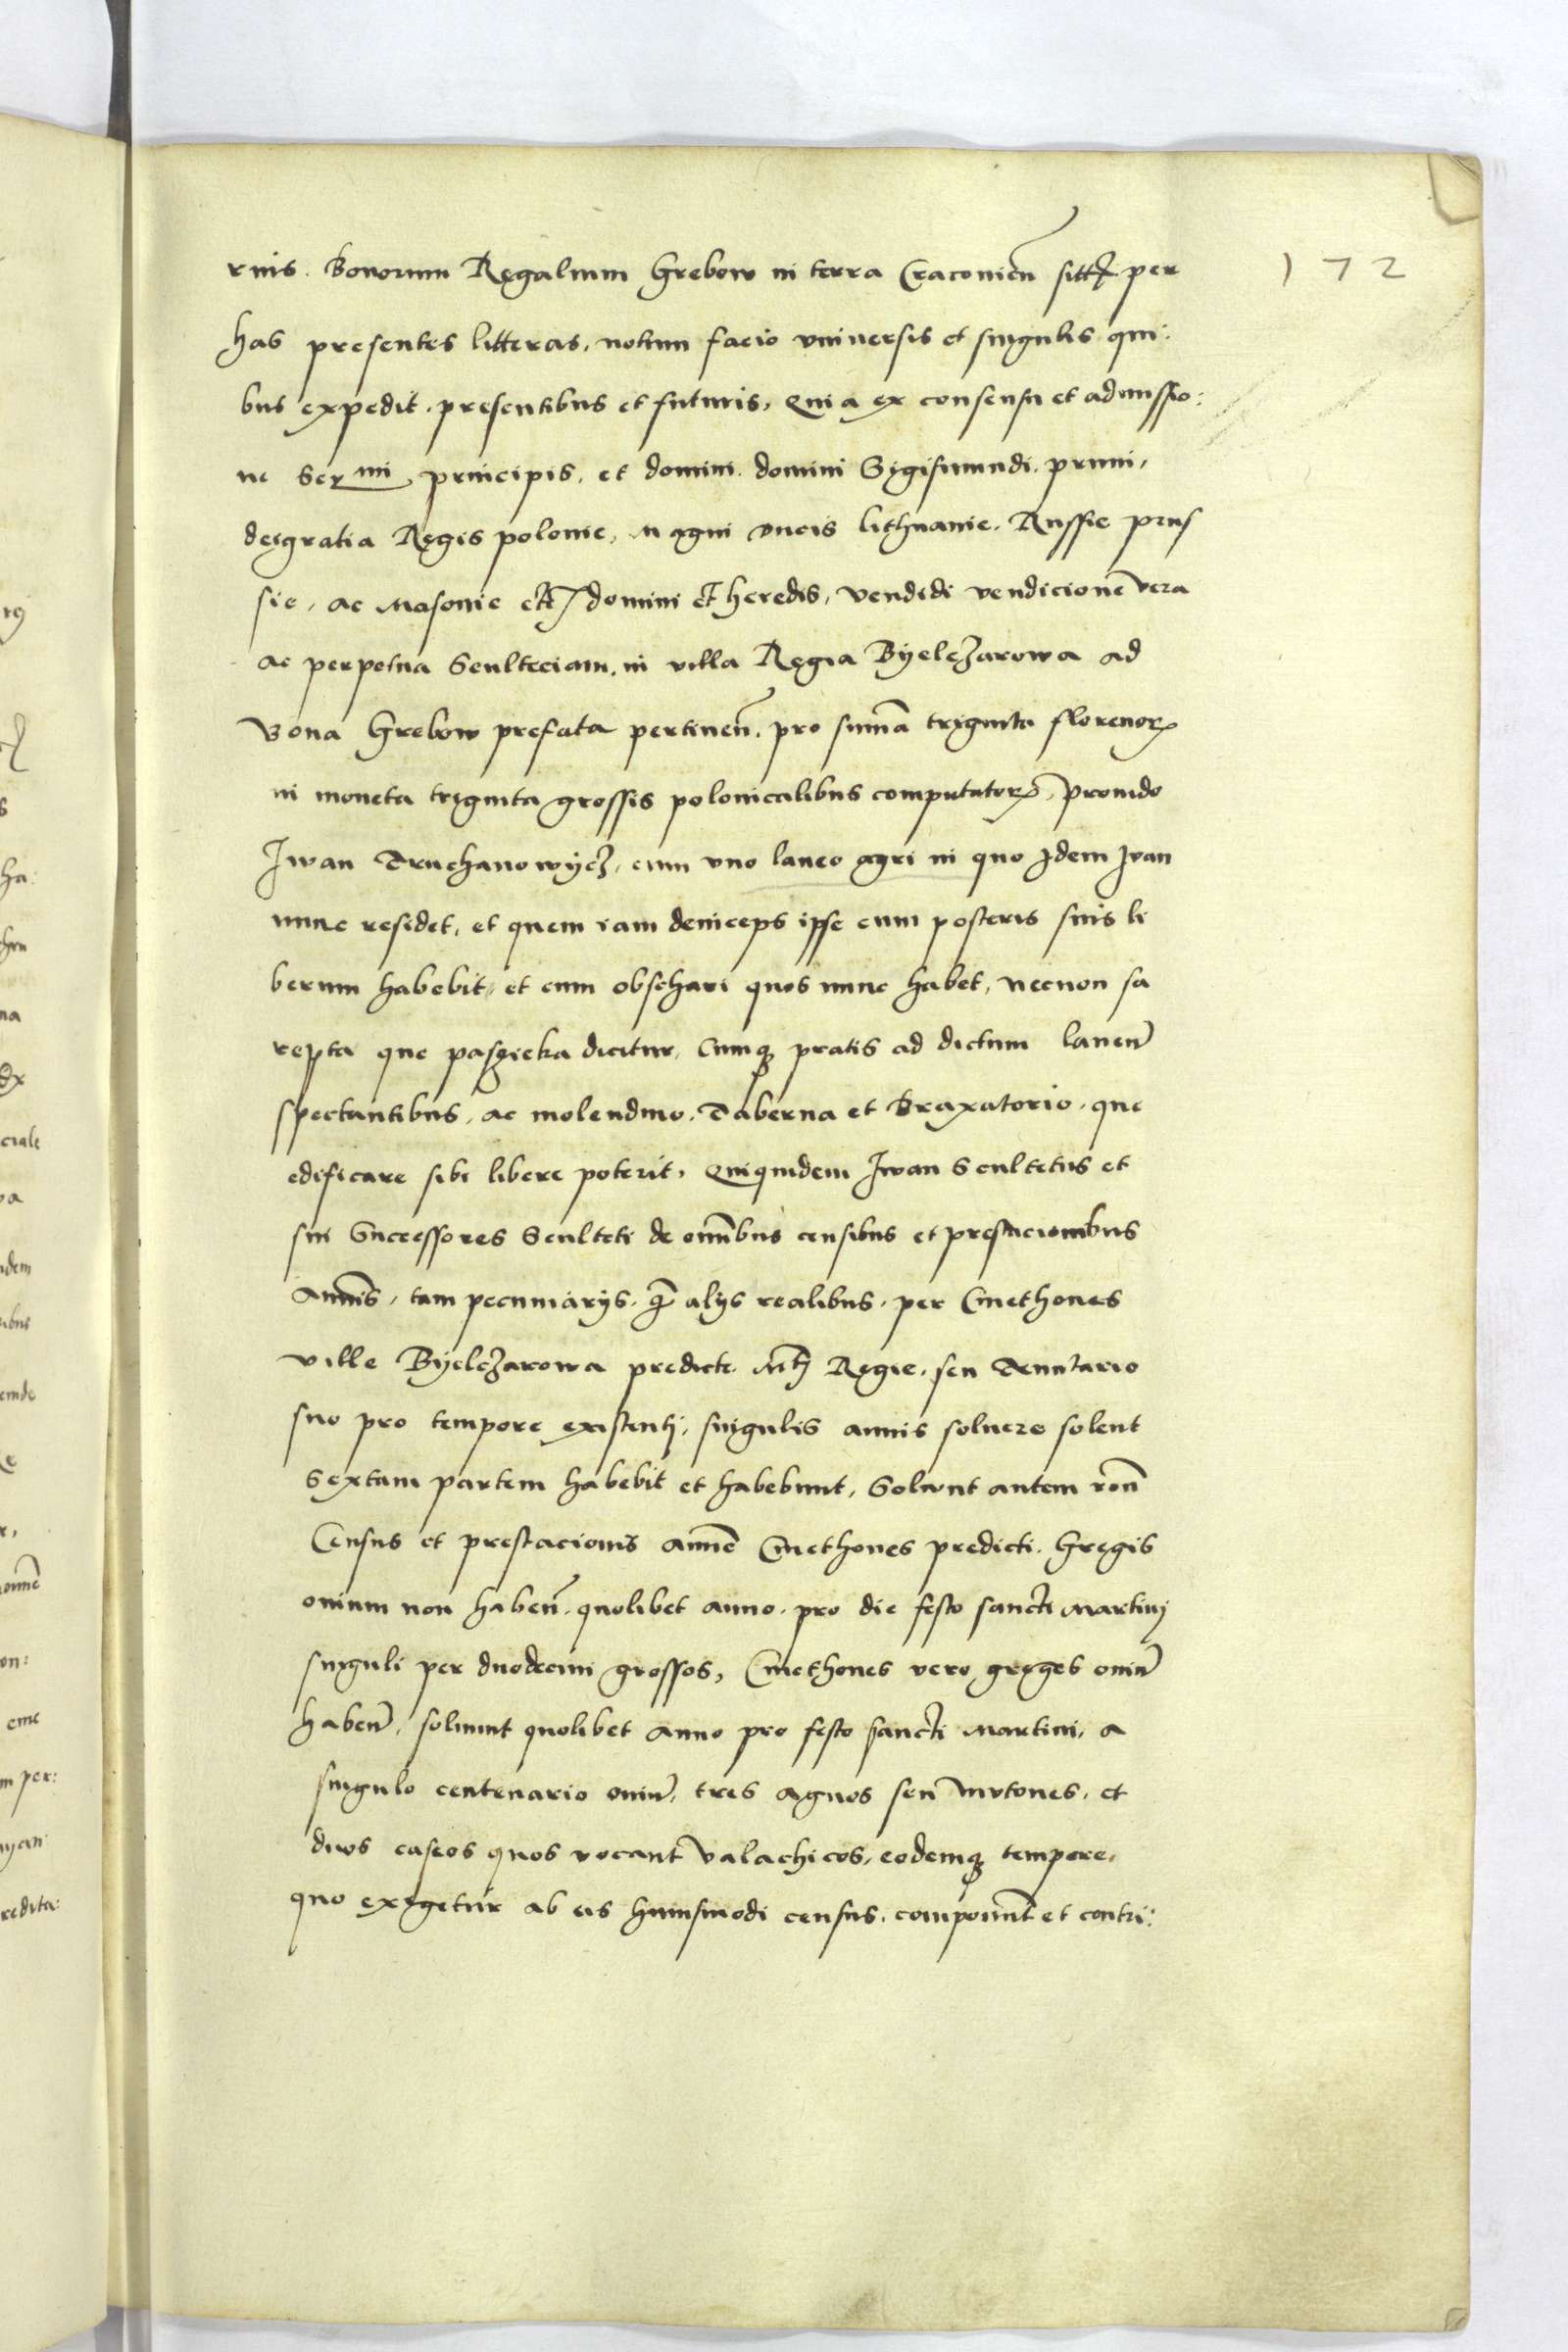 172
rius. Bonorum Regalium Grebow in terra Cracovien̄ sitt. per
has presentes litteras, notum facio universis et singulis qui:
bus expedit. presentibus et futuris, Quia ex consensu et admissio:
ne Sermi principis, et domini domini Sigismundi primi,
dei gratia Regis polonie, Magni Ducis lithuanie, Russie prus
sie, ac Masovie etc domini et heredis, vendidi vendicionē vera
ac perpetua Sculteciam, in villa Regia Byelczarowa ad
Bona Grebow prefata pertinen̄. pro summa triginta florenorꝝ
in moneta triginta grossis polonicalibus computatorꝝ, provido
Iwan Truchanowycz, cum uno laneo agri in quo Idem Ivan
nunc residet, et quem iam deinceps ipse cum posteris suis li
berum habebit, et cum obschari quos nunc habet, necnon sa
repta que pasgieka dicitur, Cumqꝫ pratis ad dictum laneū
spectantibus, ac molendino, Taberna et Braxatorio, que
edificare sibi libere poterit, Quiquidem Iwan Scultetus et
sui Successores Sculteti de omībus censibus et prestacionibus
Annuis, tam pecuniarijs, q̄ alijs realibus, per Cmethones
ville Byelczarowa predicte Mti Regie, seu Tenutario
suo pro tempore existenti, singulis annis solvere solent
Sextam partem habebit et habebunt, Solvunt autem rōn
Census et prestacionis annue Cmethones predicti. Gregis
ovium non haben̄. quolibet anno, pro die festo sancti Martini
singuli per duodecim grossos, Cmethones vero greges oviū
haben̄, solvunt quolibet Anno pro festo sancti Martini, a
singulo centenario oviū, tres Agnos seu Mutones, et
duos caseos quos vocant Valachicos, eodemqꝫ tempore,
quo exigetur ab eis huiusmodi census, componunt et contri: